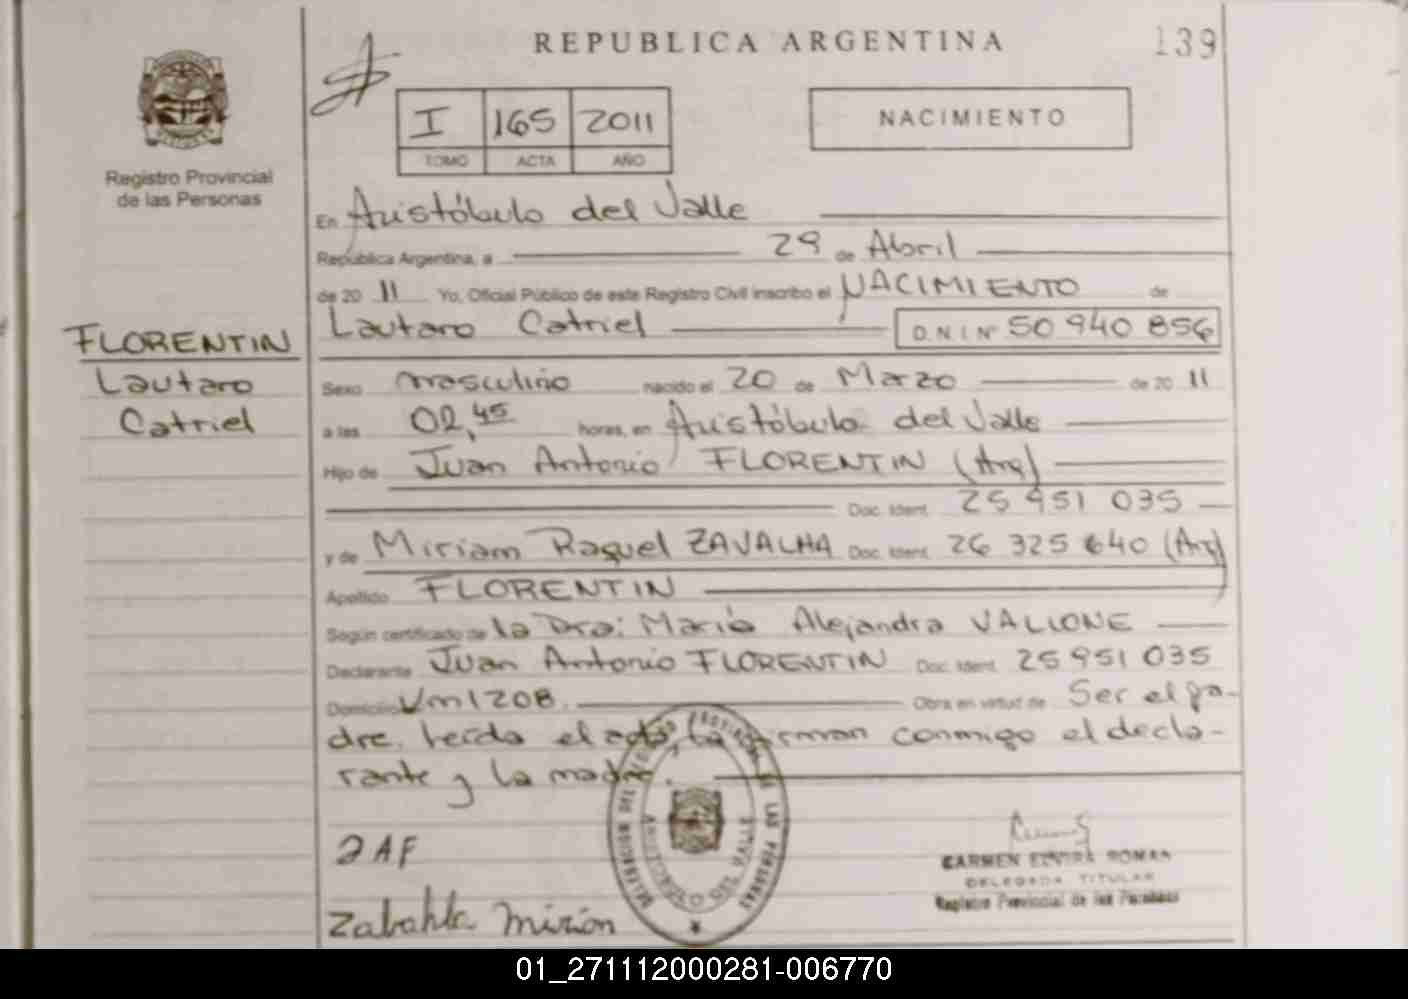 REPUBLICA ARGENTINA
139
I 165 2011
TOMO ACTA AÑO
NACIMIENTO
Registro Provincial
de las Personas
En Aristóbulo del Valle
República Argentina, a 29 de Abril
de 2011 Yo, Oficial Público de este Registro Civil inscribo el NACIMIENTO de
Lautaro Catriel D.N.I Nº 50 940 856
FLORENTIN
Lautaro
Catriel
Sexo masculino nacido el 20 de Marzo de 2011
a las 02,45 horas, en Aristóbulo del Valle
Hijo de Juan Antonio FLORENTIN (Arg)
Doc. Ident. 25 951 035
y de Miriam Raquel ZAVALHA Doc. Ident. 26 325 640 (Arg)
Apellido FLORENTIN
Según certificado de la Dra: María Alejandra VALIONE
Declarante Juan Antonio FLORENTIN Doc. Ident. 25 951 035
Domicilio Km 1208. Obra en virtud de Ser el pa-
dre. Leída el acta, la firman conmigo el decla-
rante y la madre.
DELEGACION DEL REGISTRO PROVINCIAL DE LAS PERSONAS
ARISTOBULO DEL VALLE
JAF
Zabahla Mirion
CARMEN ELVIRA ROMAN
DELEGADA TITULAR
Registro Provincial de las Personas
01_271112000281-006770